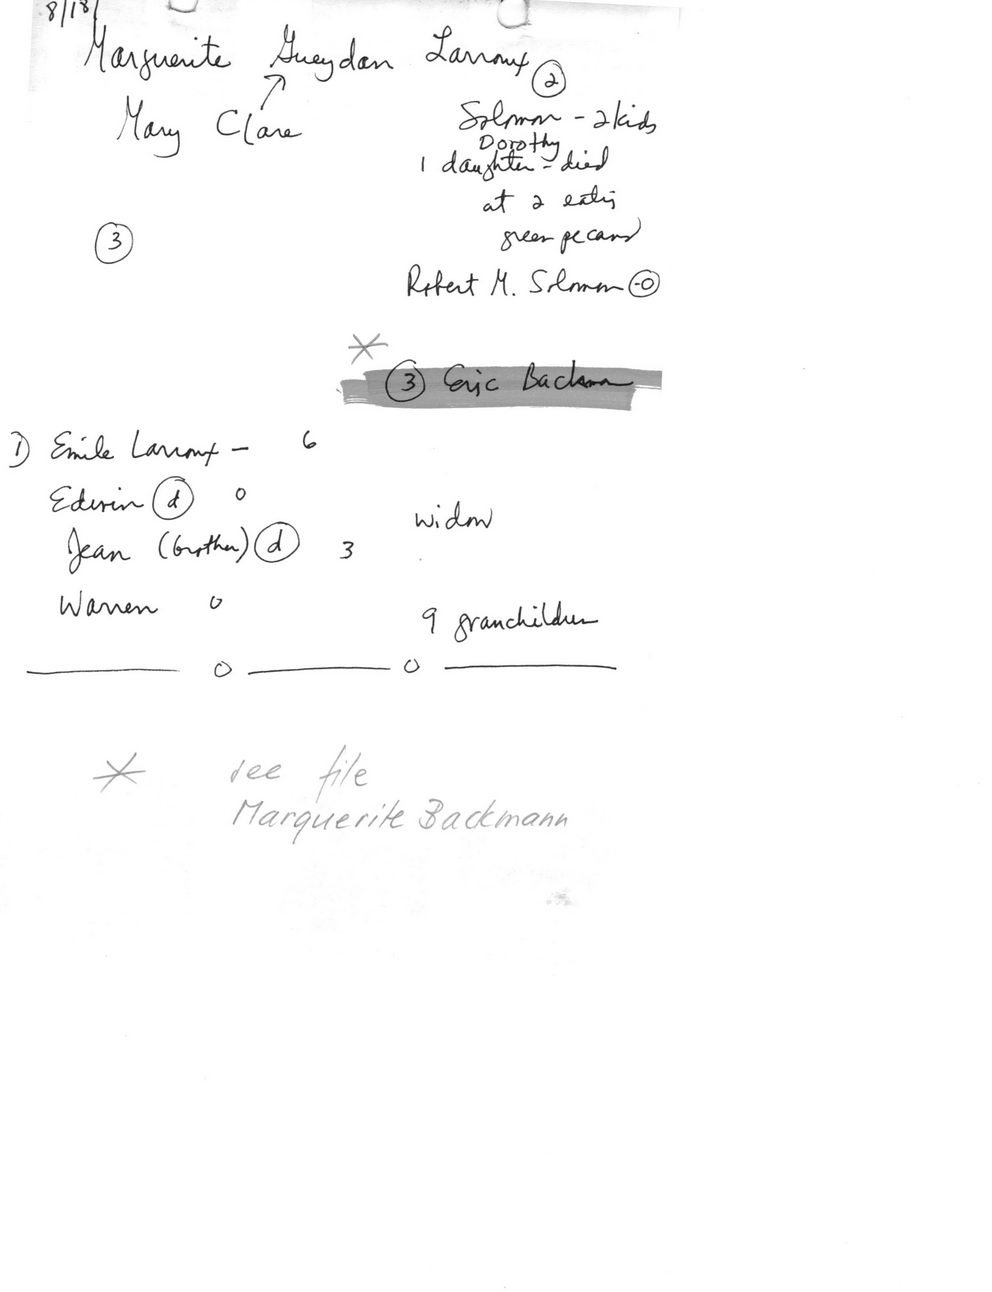 8/18/
Marguerite Gueydan Larroux
Mary Clare
②
Solomon - 2 kids
Dorothy
1 daughter - died
at 2 eating
green pecans
③
Robert M. Solomon -0
*
③ Eric Backman
1) Emile Larroux - 6
Edwin (d) 0
widow
Jean (brother) (d) 3
Warren 0
9 granchildren
0 0
* see file
Marguerite Backmann